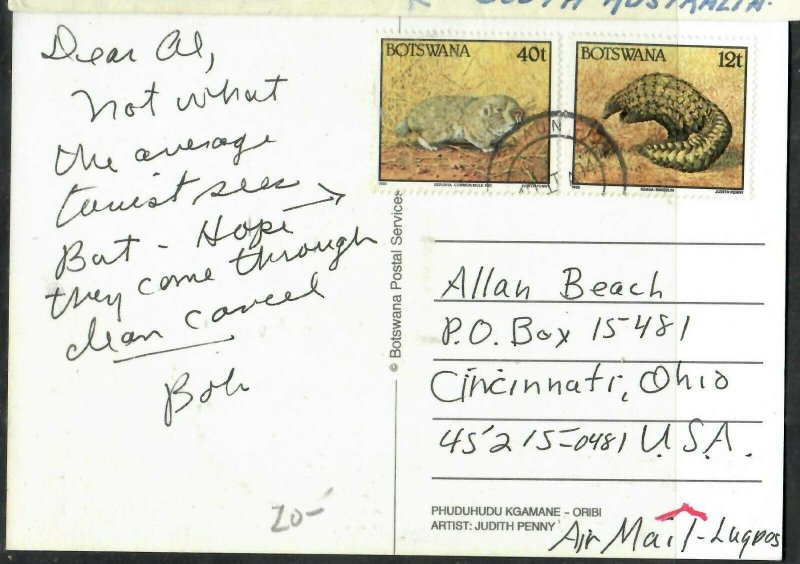 SOUTH AUSTRALIA.
Dear Al,
Not what
the average
tourist sees
But - Hope
they come through
clean cancel
Bob
20-
BOTSWANA 40t
BOTSWANA 12t
JUDITH PENNY
JUDITH PENNY
© Botswana Postal Services
Allan Beach
P.O. Box 15481
Cincinnati, Ohio
45215-0481 U.S.A.
PHUDUHUDU KGAMANE – ORIBI
ARTIST: JUDITH PENNY
Air Mail - Lugpos